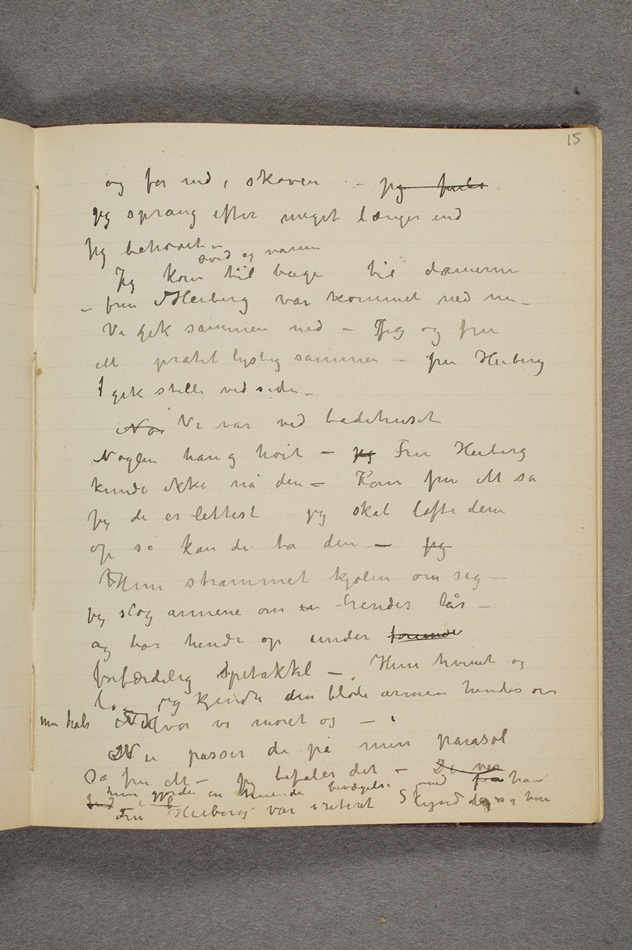 15
og for ind i skoven – jeg fulte
jeg sprang efter meget længer ind
Jeg behøvet
sved og varm
Jeg kom til bage til damerne
– fru Heiberg var kommet ned nu –
Vi gik sammen ned – Jeg og fru
M pratet lystig sammen – fru Heiberg
gik stille ved siden –
Nå Vi var ved badehuset
Nøglen hang høit – jeg Fru Heiberg
kunde ikke nå den – Kom fru M sa
jeg de er lettest – jeg skal løfte dem
op så kan de ta den – jeg
Hun strammet kjolen om sig –
jeg slog armene om en hendes lår –
og bar hende op under
forfærdelig spetakkel – Hun hvinet og
lo – jeg kjendte den bløde armen hendes om
min hals Nei hvor vi moret os –
Nu passer de på min parasol
Sa fru M – Jeg befaler det – De ver
hun gjorde en truende bevægelse med
Fru Heiberg var iriteret Skynd dig sa hun